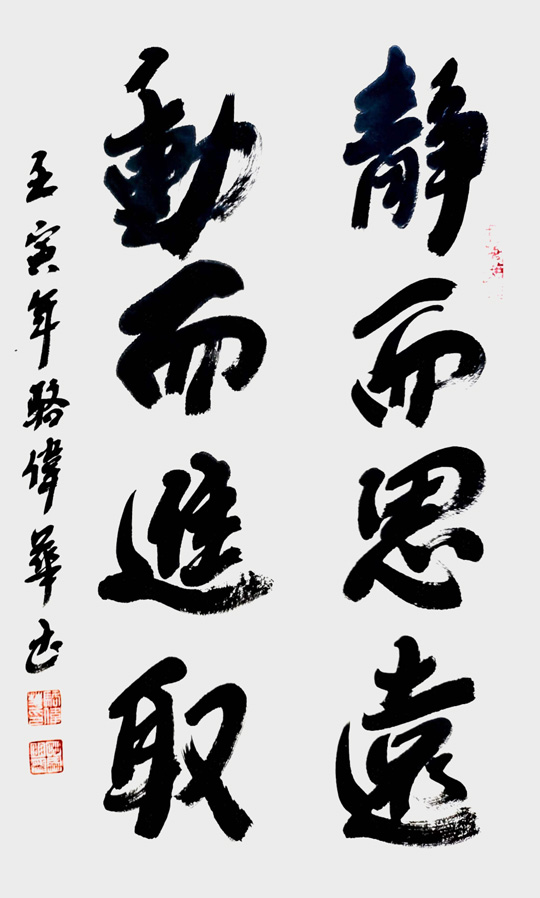 靜而思遠
動而進取
壬寅年駱偉華书